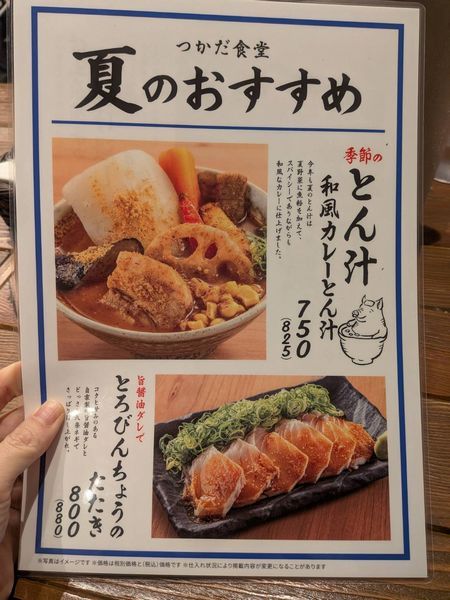 つかだ食堂
夏のおすすめ
季節の
とん汁
和風カレーとん汁
750
(825)
今年も夏のとん汁は
夏野菜に魚粉を加えて、
スパイシーでありながらも
和風なカレーに仕上げました。
旨醤油ダレで
とろびんちょうの
たたき
800
(880)
コクと辛みのある
どっさり葉ネギで
さっぱり召し上がれ。
※写真はイメージです ※価格は税別価格と(税込)価格です ※仕入れ状況により掲載内容が変更になることがあります